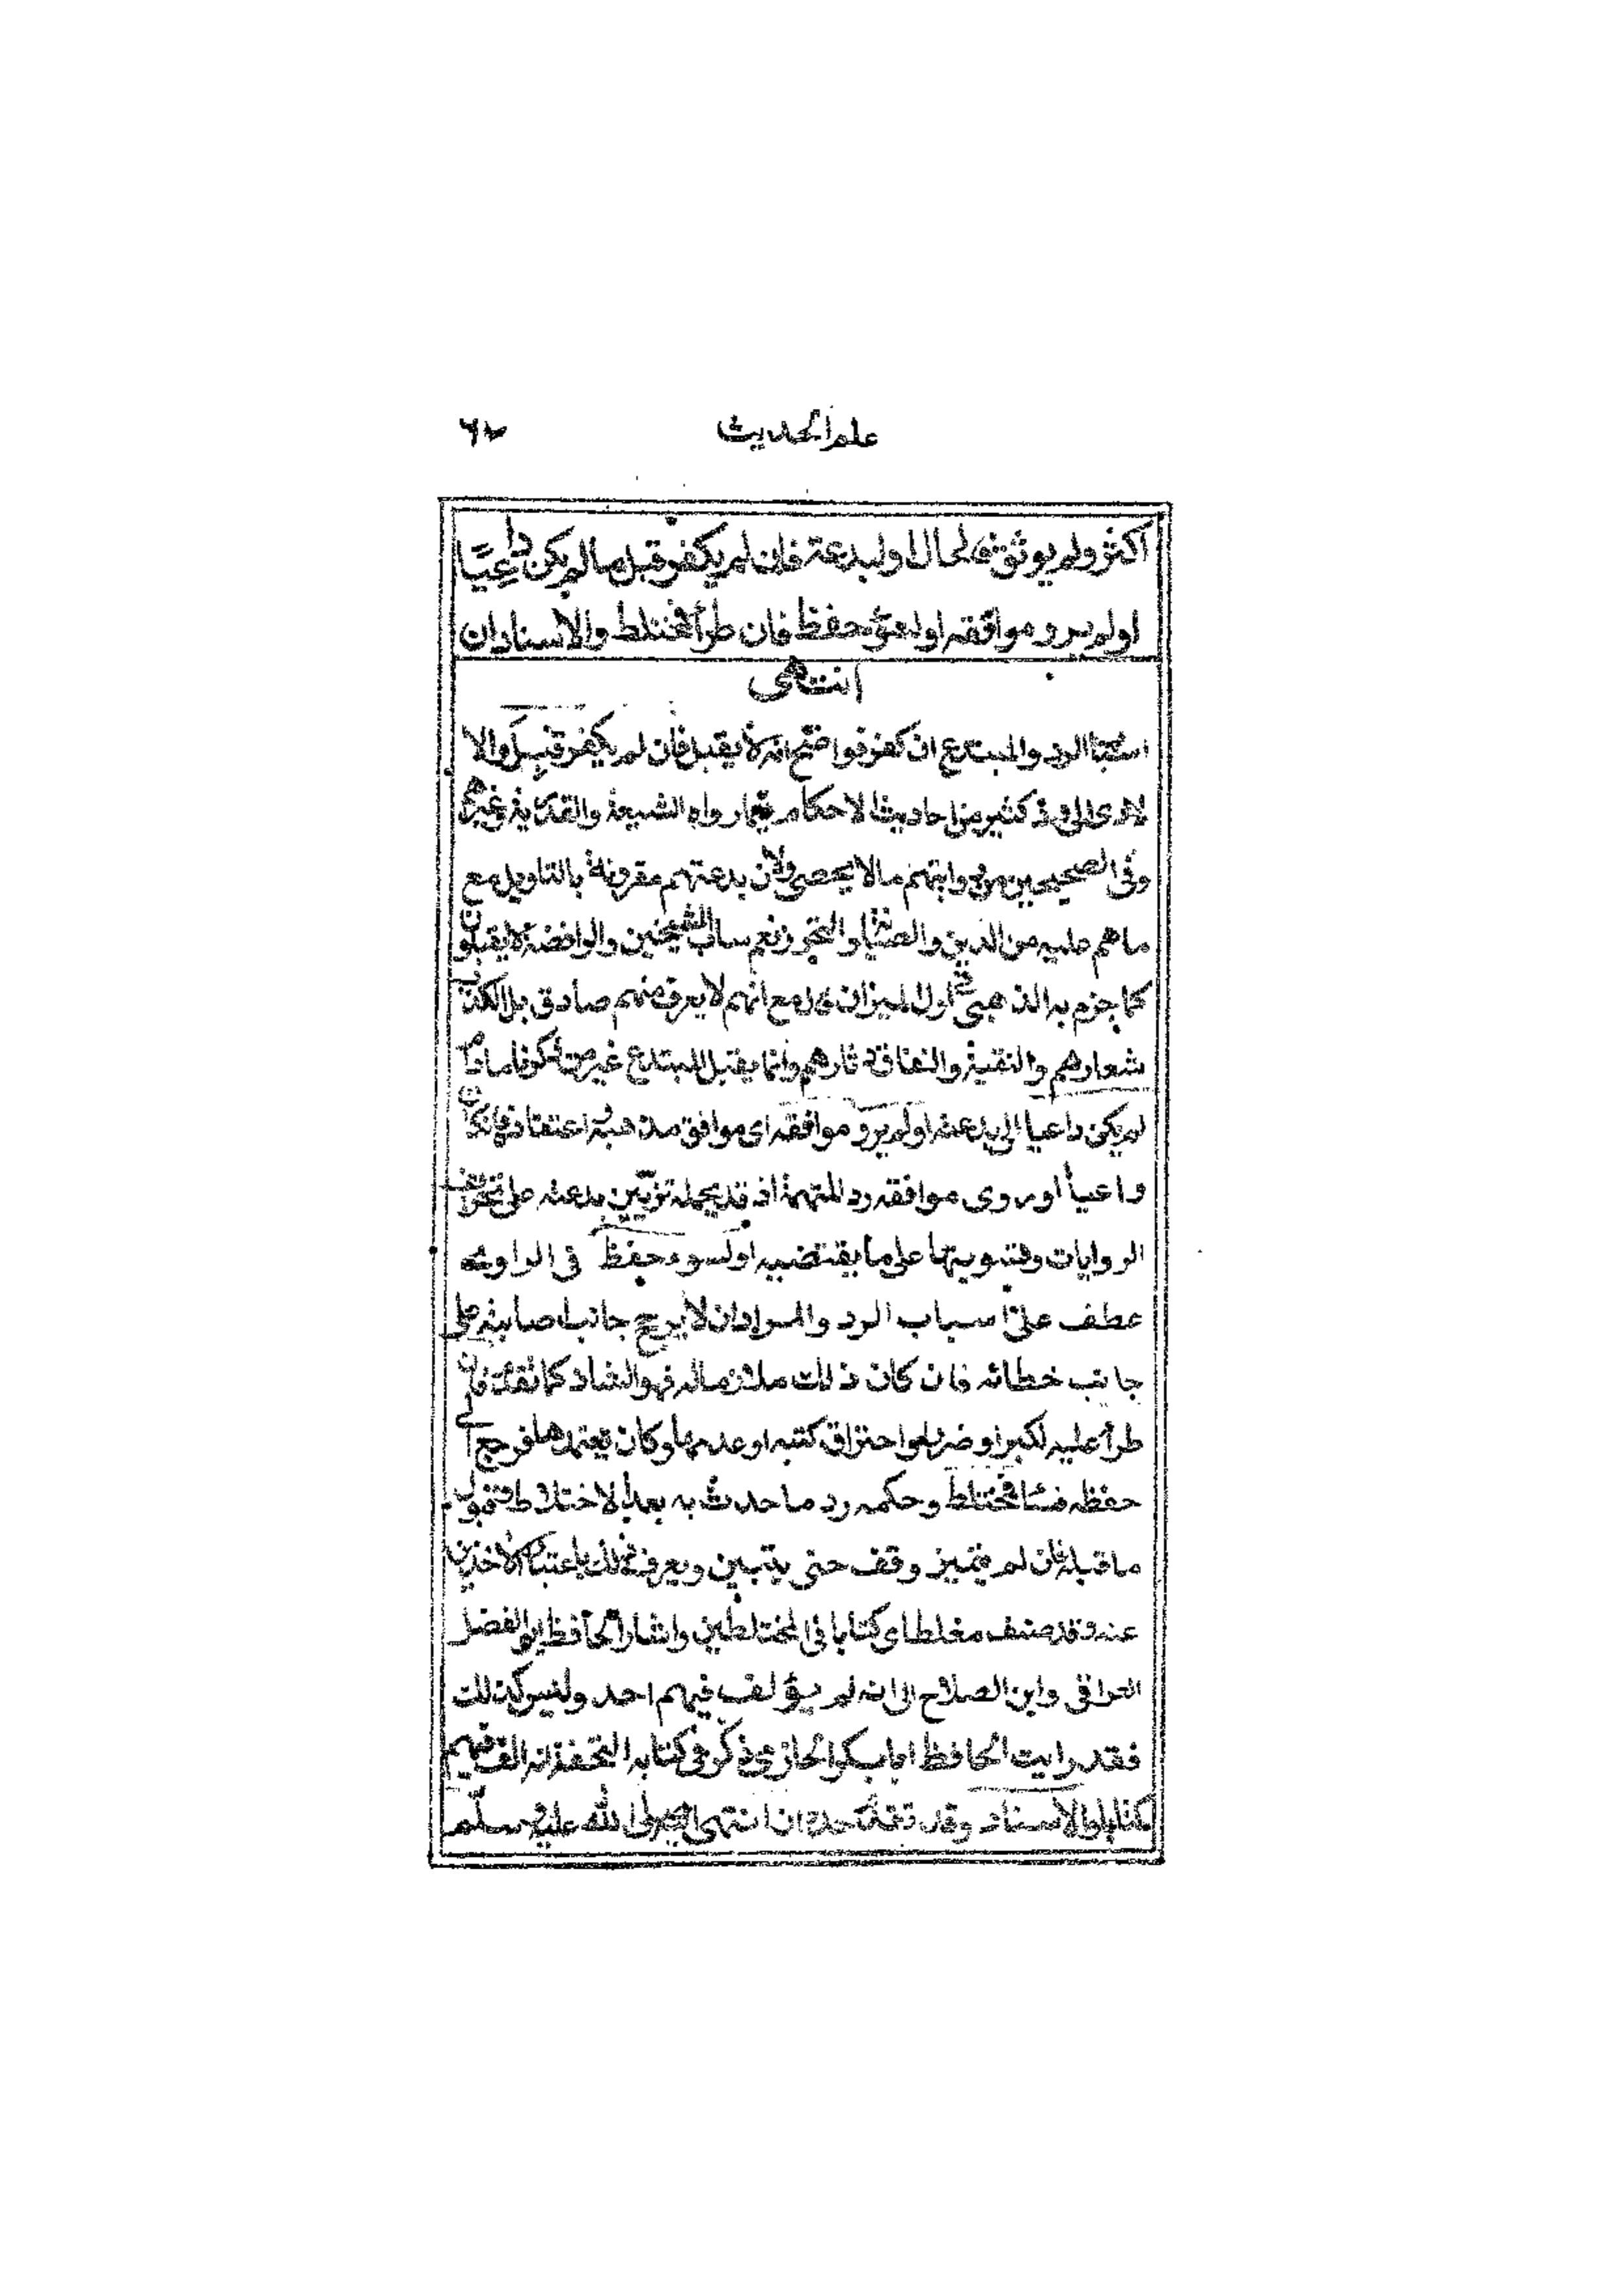 علم الحديث ٦٧
اكثر ولم يوثق فالحال او لبدعة فان لم يكفر قبل مالم يكن داعيًا
اولم يرو موافقه او لسوء حفظ فان طرأ فمختلط والاسناد ان
انتهى
اسباب الرد والمبتدع ان كفر فواضح انه لا يقبل فان لم يكفر قبل والا
لادى الى رد كثير من احاديث الاحكام مما رواه الشيعة والقدرية وغيرهم
وفى الصحيحين من روايتهم مالا يحصى ولان بدعتهم مقرونة بالتاويل مع
ما هم عليه من الدين والصيانة والتحرز نعم ساب الشيخين والرافضة لا يقبلون
كما جزم به الذهبى فى اول الميزان قال مع انهم لا يعرف منهم صادق بل الكذب
شعارهم والتقية والنفاق دثارهم وانما يقبل المبتدع غير من ذكرنا ما
لم يكن داعيا الى بدعته اولم يرو موافقه اى موافق مذهبه واعتقاده فان كان
داعيا او روى موافقه رد للتهمة اذ قد يحمله تزيين بدعته على تحريف
الروايات وتسويتها على ما يقتضيه او لسوء حفظ فى الراوى
عطف على اسباب الرد والمراد ان لا يرجح جانب اصابته على
جانب خطائه فان كان ذلك ملازما له فهو الشاذ كما تقدم فان
طرأ عليه لكبر او ضر او احتراق كتبه او عدمها وكان يعتمدها فرجع الى
حفظه فساء فمختلط وحكمه رد ما حدث به بعد الاختلاط وقبول
ما قبله فان لم يتميز وقف حتى يتبين ويعرف ذلك باعتبار الاخذين
عنه وقد صنف مغلطاى كتابا فى المختلطين واشار الحافظ ابو الفضل
العراقى وابن الصلاح الى انه لم يؤلف فيهم احد وليس كذلك
فقد رايت الحافظ ابابكر الحازمى ذكر فى كتابه التحفة انه الف فيهم
كتابا والاسناد وقد تقدم حده ان انتهى اليه صلى الله عليه وسلم